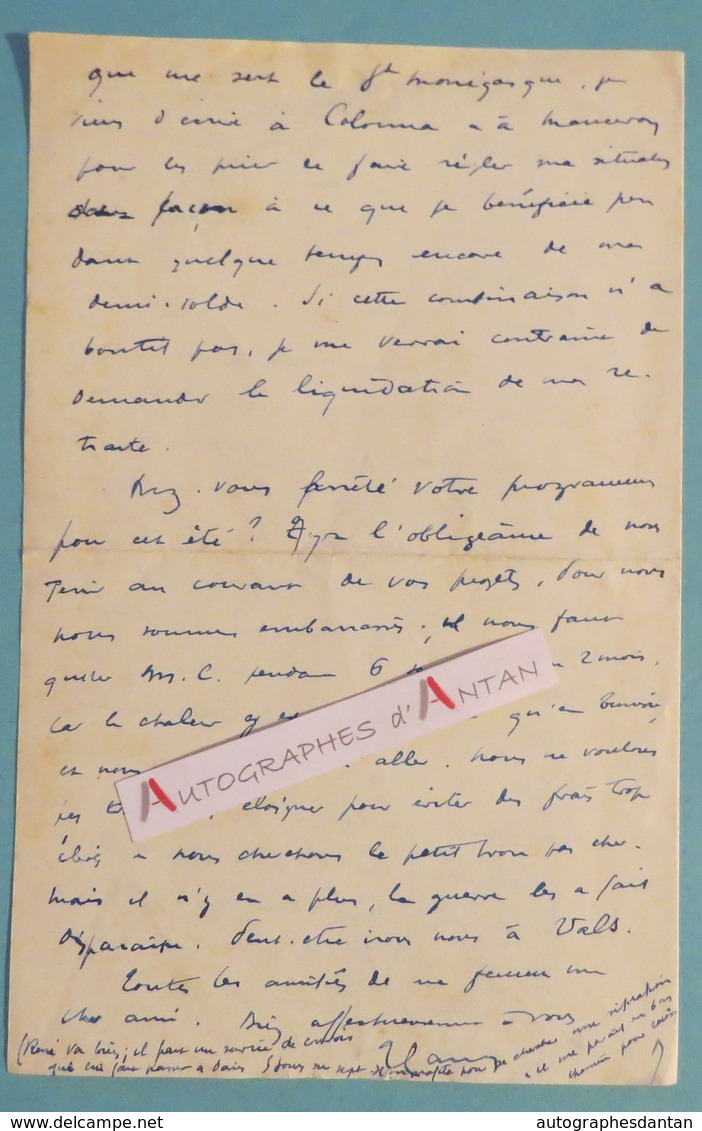 que me sert le Gt monégasque, je
viens d'écrire à Colonna et à
pour les prier de faire régler ma situation
façon à ce que je bénéficie pen
dant quelque temps encore de ma
demi-solde. Si cette combinaison n'a
boutit pas, je me verrai contraint de
demander la liquidation de ma re-
traite.
Avez-vous arrêté votre programme
pour cet été? Ayez l'obligeance de nous
tenir au courant de vos projets, pour nous
nous sommes embarrassés; il nous faut
quitter M. C. pendant 6 2 mois,
car la chaleur y qu'en
et nous aller. Nous ne voudrions
pas éloigner pour éviter des frais trop
élevés et nous cherchons le petit trou pas cher.
Mais il n'y en a plus, la guerre les a fait
disparaître. Peut-être irons nous à Vals.
Toutes les amitiés de ma femme mon
cher ami. Bien affectueusement à vous
(René va bien; il fait un service de
qui lui fait passer à Paris 5 jours sur sept. Il en profite pour se chercher une situation
et il me paraît en bon
chemin pour
AUTOGRAPHES d'ANTAN
autographesdantan